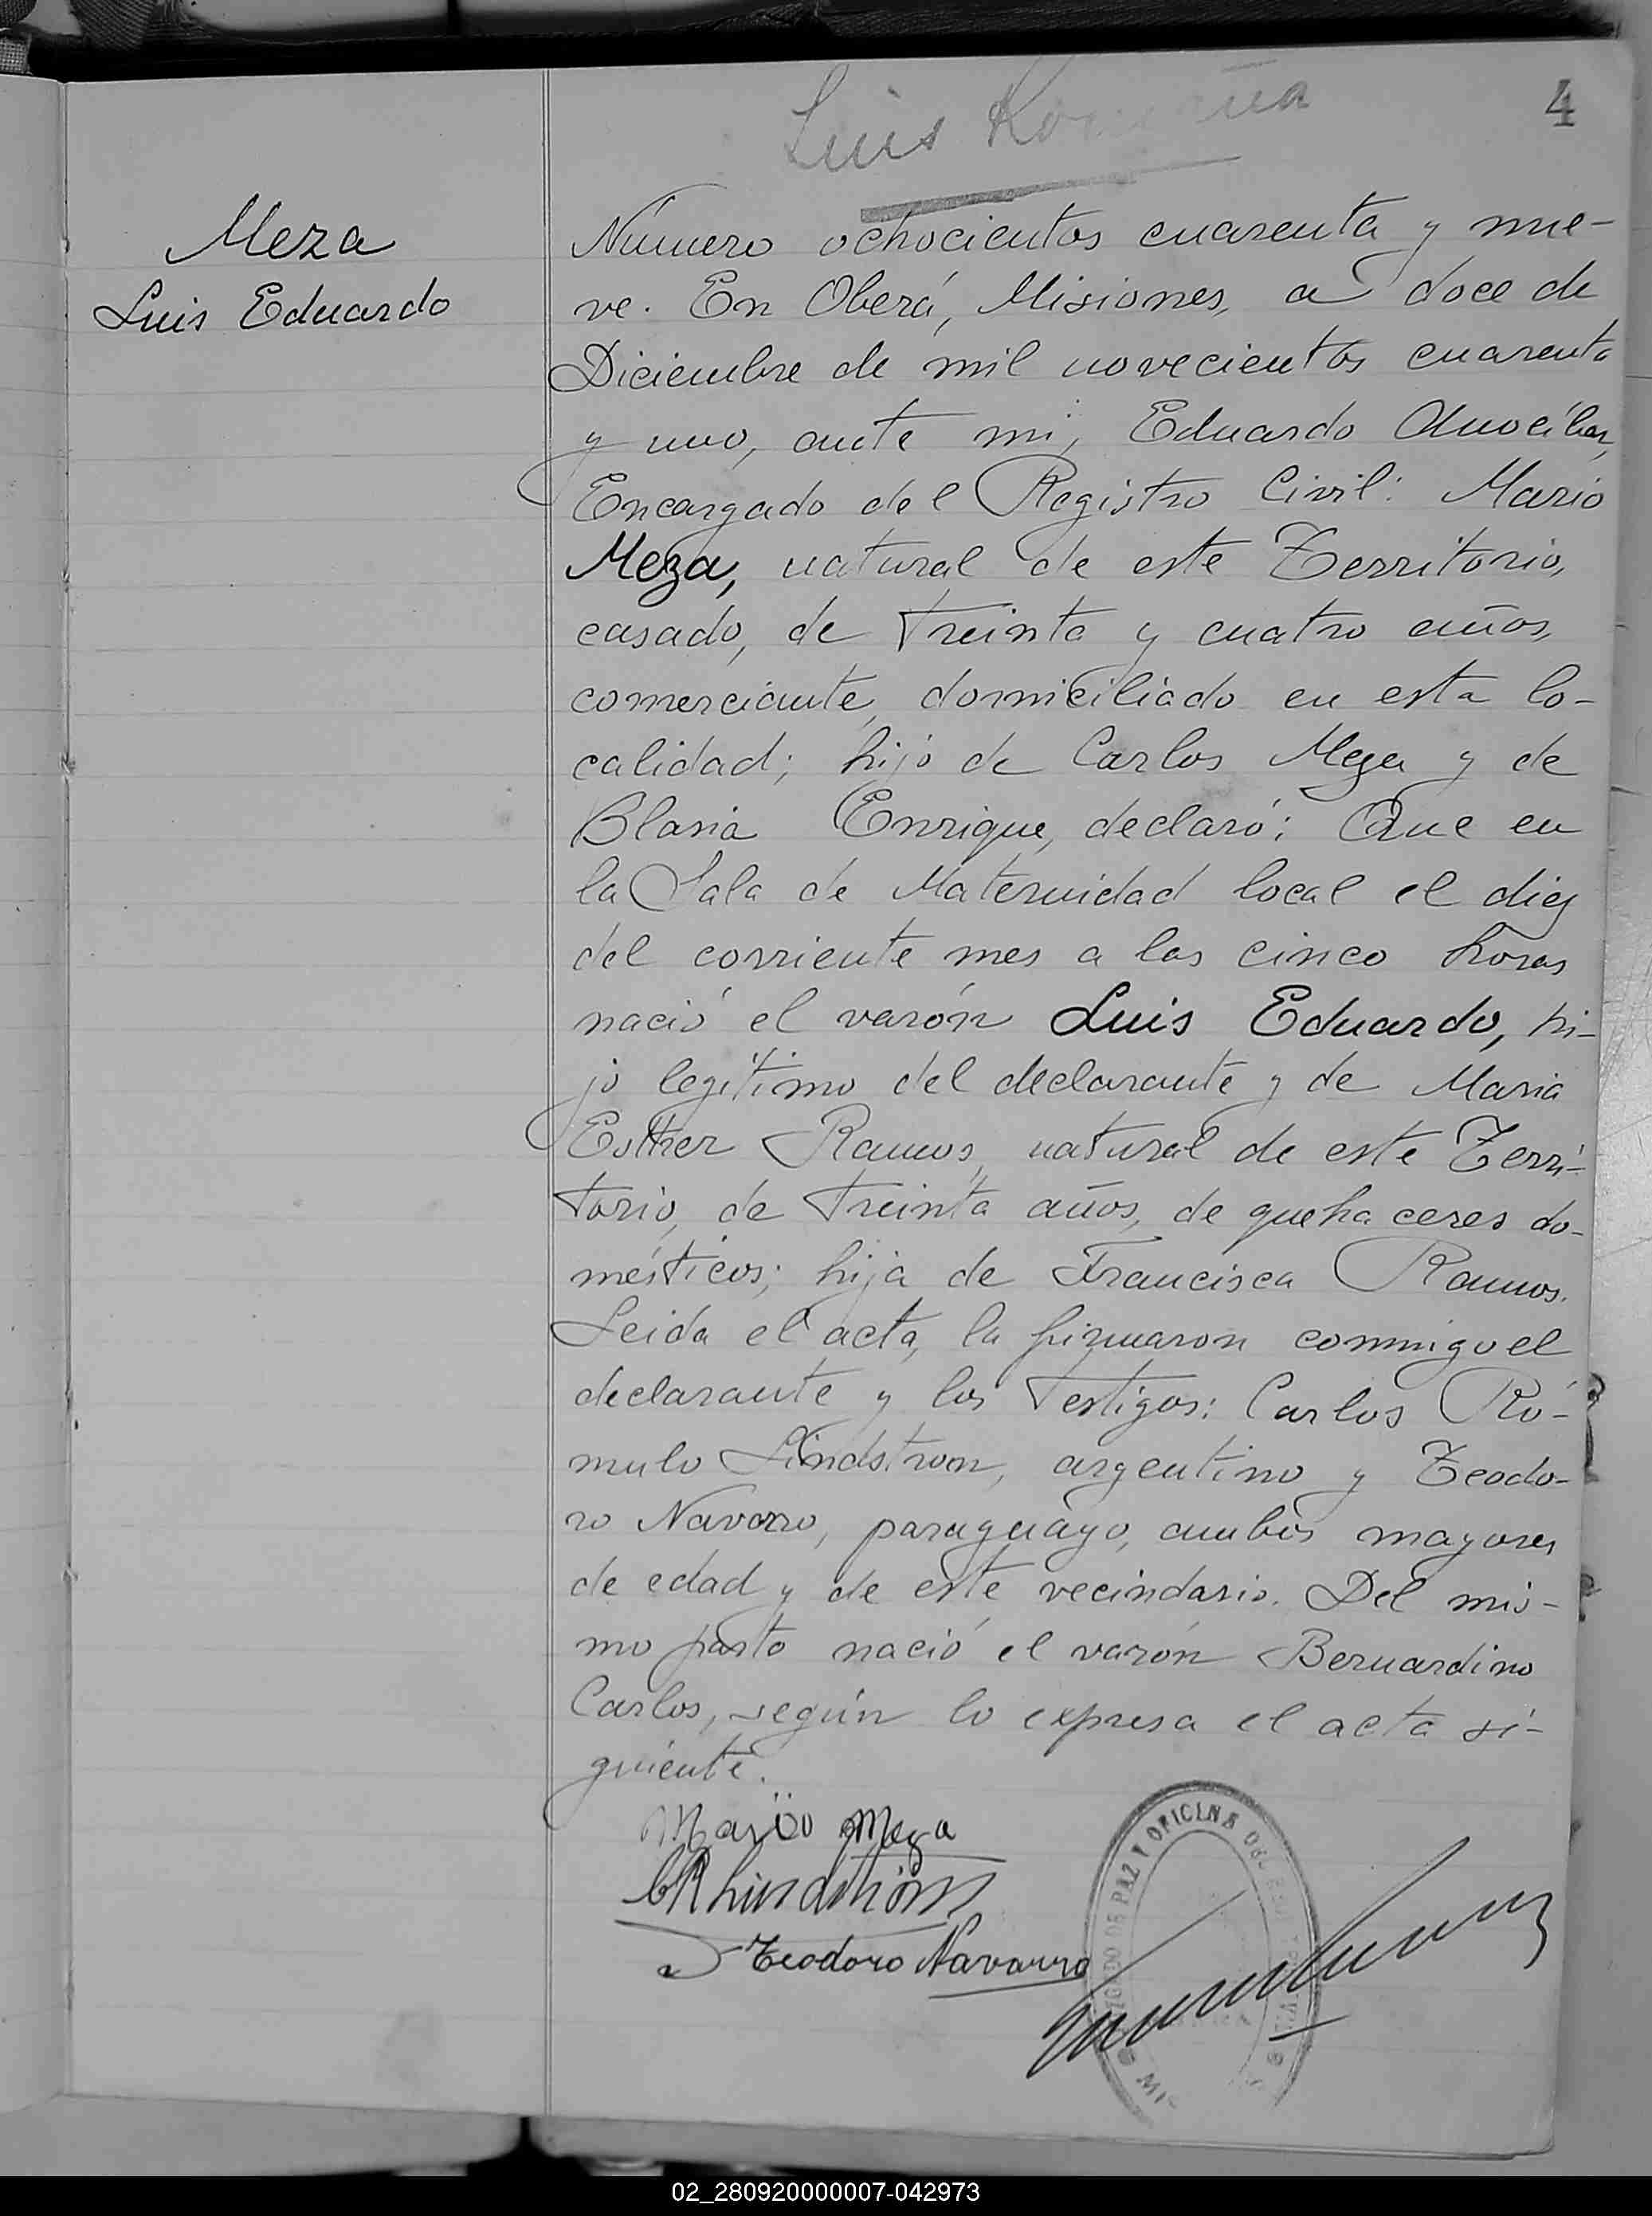 4
Luis
Meza
Luis Eduardo
Número ochocientos cuarenta y nue-
ve. En Oberá, Misiones, a doce de
Diciembre de mil novecientos cuarenta
y uno, ante mi, Eduardo
Encargado del Registro Civil: Mario
Meza, natural de este Territorio,
casado, de treinta y cuatro años,
comerciante, domiciliado en esta lo-
calidad; hijo de Carlos Meza y de
Blasia Enrique, declaró: Que en
la Sala de Maternidad local el diez
del corriente mes a las cinco horas
nació el varón Luis Eduardo, hi-
jo legítimo del declarante y de Maria
Esther Ramos, natural de este Terri-
torio, de treinta años, de quehaceres do-
mésticos; hija de Francisca Ramos.
Leida el acta, la firmaron conmigo el
declarante y los testigos: Carlos Ró-
mulo Lindstrom, argentino y Teodo-
ro Navarro, paraguayo, ambos mayores
de edad y de este vecindario. Del mis-
mo parto nació el varón Bernardino
Carlos, según lo expresa el acta si-
guiente.
Mario Meza
CRLindstrom
Teodoro Navarro
DE PAZ Y OFICINA
02_280920000007-042973